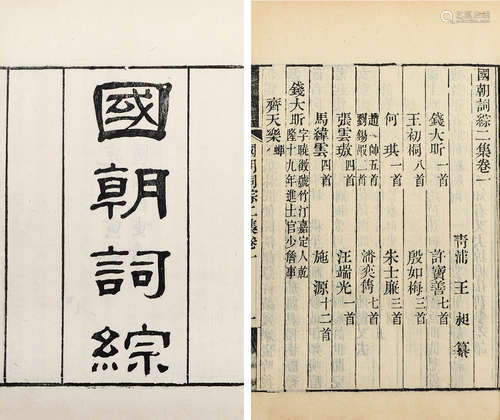 國朝詞綜
國朝詞綜二集卷一
青浦 王 昶 纂
錢大昕一首 許寶善七首
王初桐八首 殷如梅三首
何 琪一首 朱士廉三首
趙 帥五首
劉錫嘏首 潘奕雋七首
張雲璈四首 汪端光一首
馬緯雲四首 施 源十二首
錢大昕字曉徵號竹汀嘉定人乾
隆十九年進士官少詹事
齊天樂蟬
國朝詞綜二集卷一